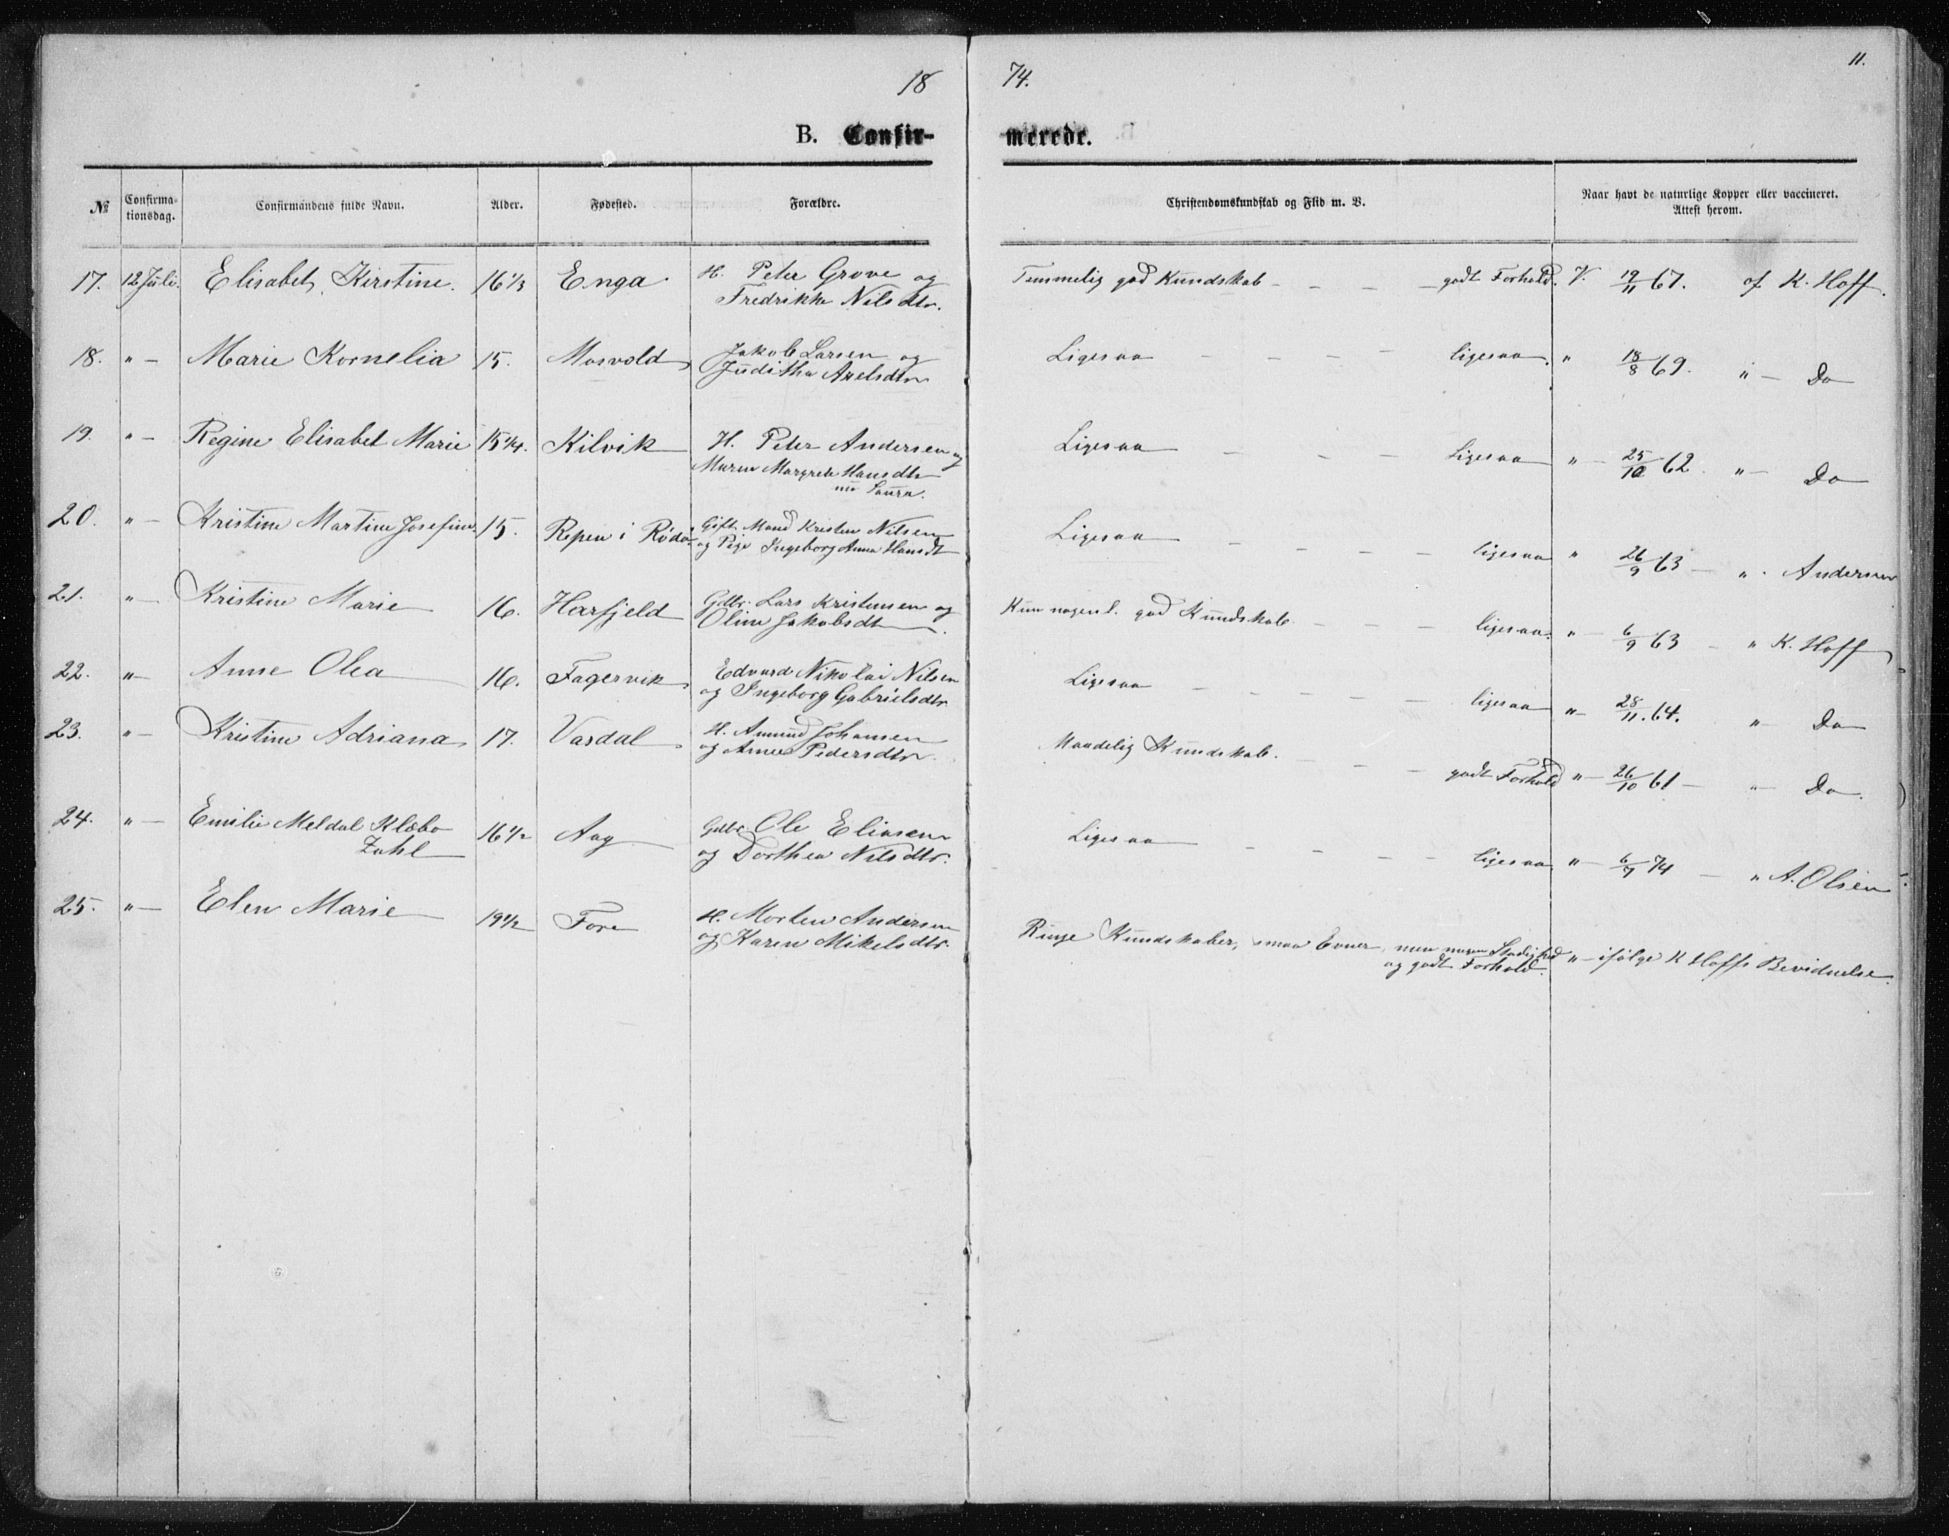 18 74. 11.
B. Confirmerede.
№ Confirmationsdag. Confirmandens fulde Navn. Alder. Fødested. Forældre. Christendomskundskab og Flid m. V. Naar havt de naturlige Kopper eller vaccineret. Attest herom.
17. 12 Juli. Elisabet Kirstine. 16 1/3 Enga H. Peter Grove og Temmelig god Kundskab - - - - godt Forhold. V. 19/11 67. af K. Hoff.
Fredrikke Nilsdtr.
18. " — Marie Kornelia 15. Mosvold Jakob Larsen og Ligesaa - - - - ligesaa. " 18/8 69. " — Do
Juditha Axelsdtr
19. " — Regine Elisabet Marie 15 1/4. Kilvik H. Peter Andersen og Ligesaa - - - Ligesaa " — 25/10 62. " — Do
Maren Margrete Hansdtr
20. " — Kristine Martine Josefine. 15. Repen i Rödö. Gift Mand Kristen Nilsen Ligesaa - - - - ligesaa " 26/9 63 — ". Andersen
og Pige Ingeborg Anna Hansdt
21. " — Kristine Marie 16. Harfjeld Gdbr. Lars Kristensen og Kun nogenl. god Kundskab - - - ligesaa. " — 6/9 63 — " K. Hoff
Oline Jakobsdt
22. " — Anne Olea 16. Fagervik Edvard Nikolai Nilsen Ligesaa - - - - ligesaa " — 28/11. 64. " Do
og Ingeborg Gabrielsdtr
23. " — Kristine Adriana 17. Vasdal H. Amund Johansen Maadelig Kundskab. - - - godt Forhold " — 26/10 61 — " Do.
og Anne Pedersdtr.
24. " — Emilie Meldal Klæbo 16 1/2 Aag Gdbr Ole Eliasen Ligesaa - - - - ligesaa " — 6/7 74 — " A. Olsen
Zahl og Dorthea Nilsdtr.
25. " — Elen Marie 19 1/2 Fore H. Morten Andersen Ringe Kundskaber, smaa Evner, men megen Stadighed " — ifölge K Hoffs Bevidnelse.
og Karen Mikelsdtr. og godt Forhold.